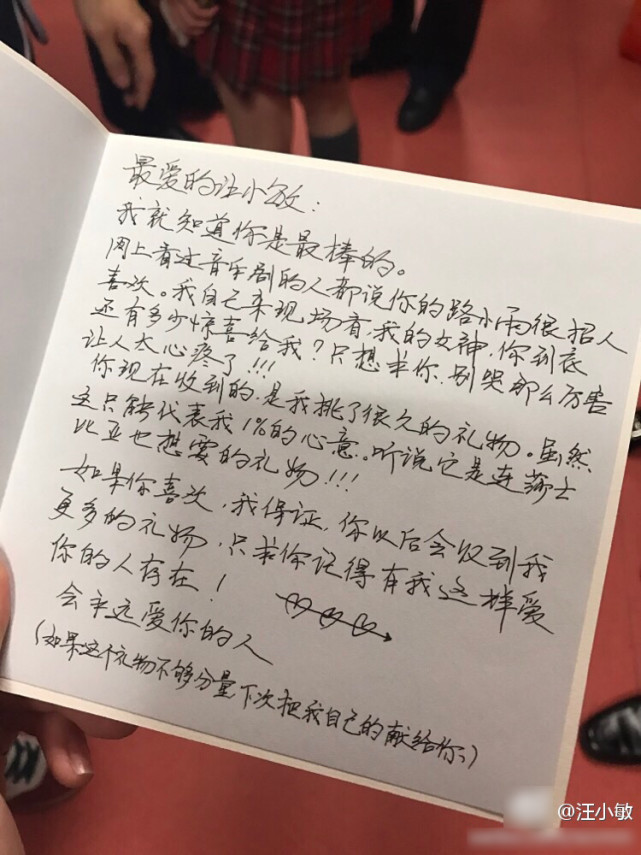 最爱的汪小敏：
我就知道你是最棒的。
网上看过音乐剧的人都说你的路小雨很招人
喜欢。我自己来现场看，我的女神，你到底
还有多少惊喜给我？只想求你，别哭那么厉害
让人太心疼了!!!
你现在收到的，是我挑了很久的礼物。虽然
这只能代表我1%的心意。听说它是连莎士
比亚也想要的礼物!!!
如果你喜欢，我保证，你以后会收到我
更多的礼物，只求你记得有我这样爱
你的人存在！
会永远爱你的人
(如果这个礼物不够分量下次把我自己的献给你)
@汪小敏